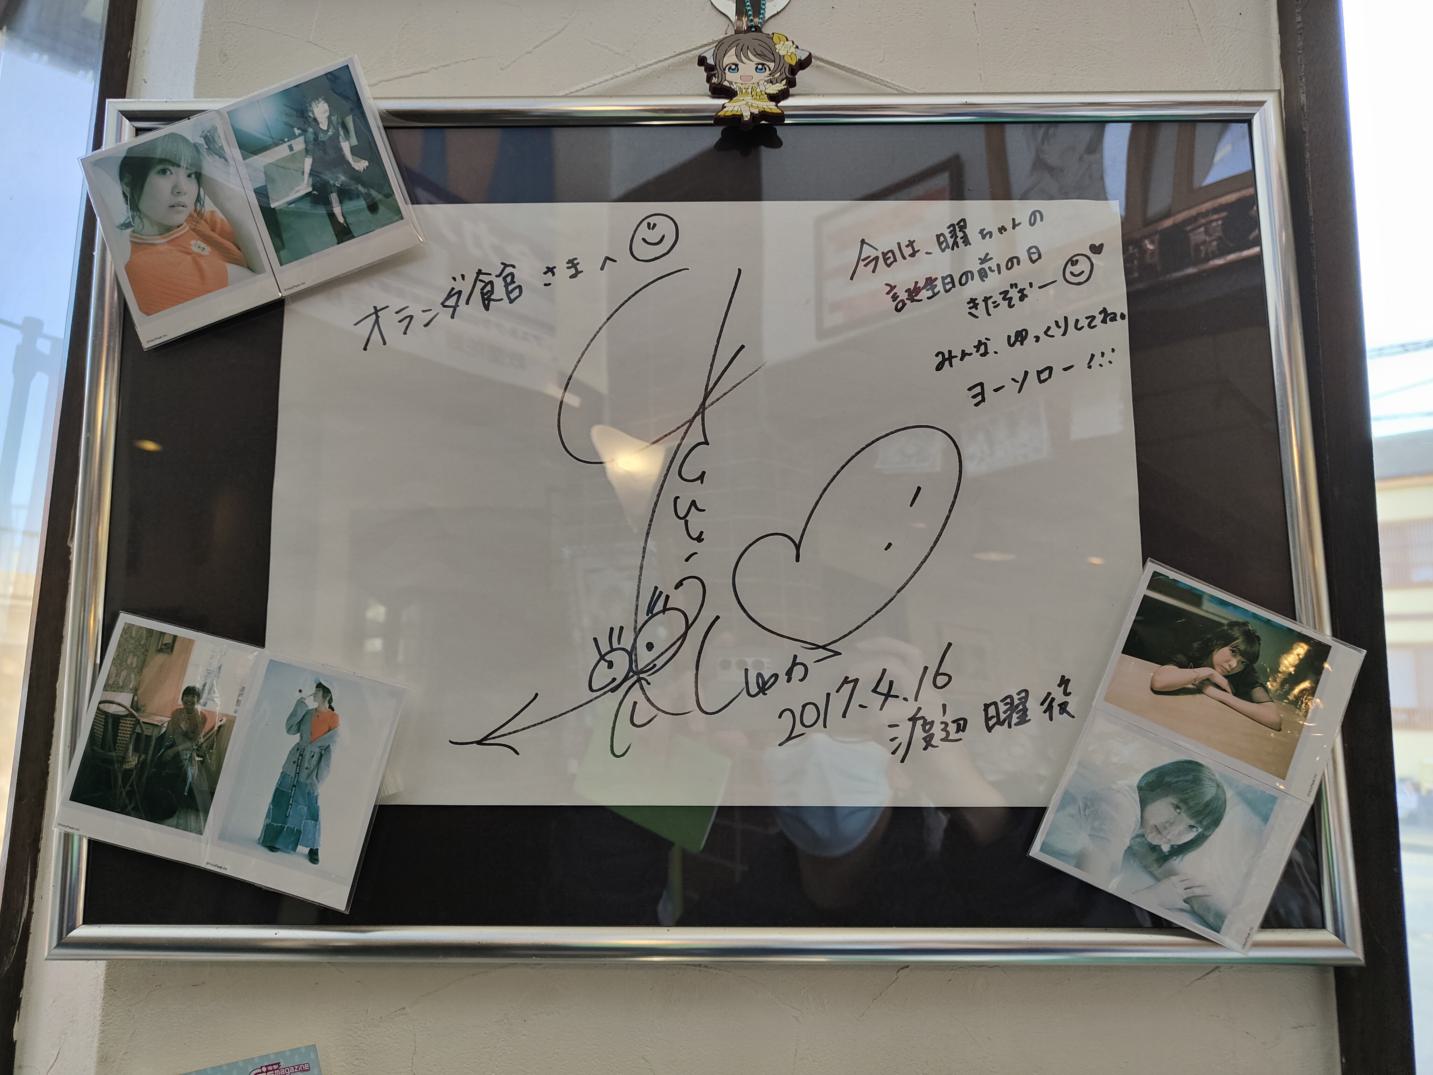 オランダ食官 さまへ
今日は、曜ちゃんの
誕生日の前の日
きたぞぉー
みんな、ゆっくりしてね。
ヨーソロー!!!
さいとう
しゅか
2017.4.16
渡辺 曜 役
magazine